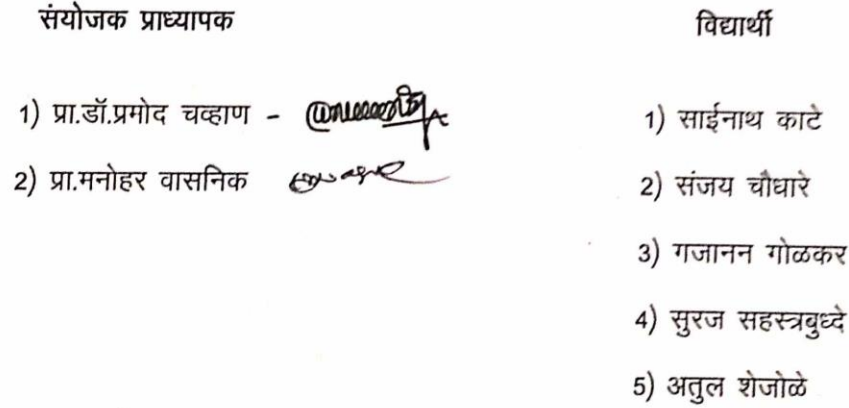 संयोजक प्राध्यापक
1) प्रा.डॉ.प्रमोद चव्हाण -
2) प्रा.मनोहर वासनिक
विद्यार्थी
1) साईनाथ काटे
2) संजय चौधारे
3) गजानन गोळकर
4) सुरज सहस्त्रबुध्दे
5) अतुल शेजोळे